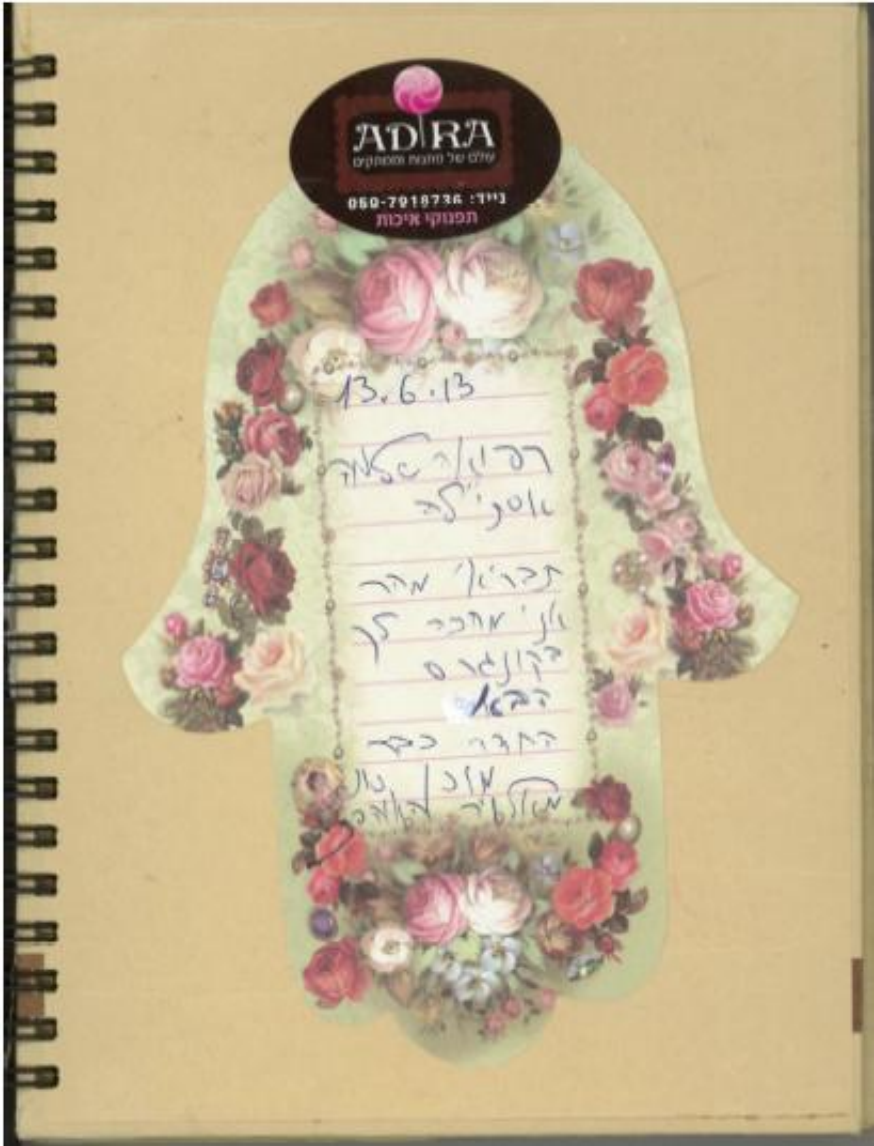 ADIRA
עולם של מתנות וממתקים
נייד: 050-7918736
תפנוקי איכות
13.6.13
רפואה שלמה
אסתי'לה
תבריאי מהר
אני מחכה לך
בקונגרס
הבא
החדר כבר
מוכן